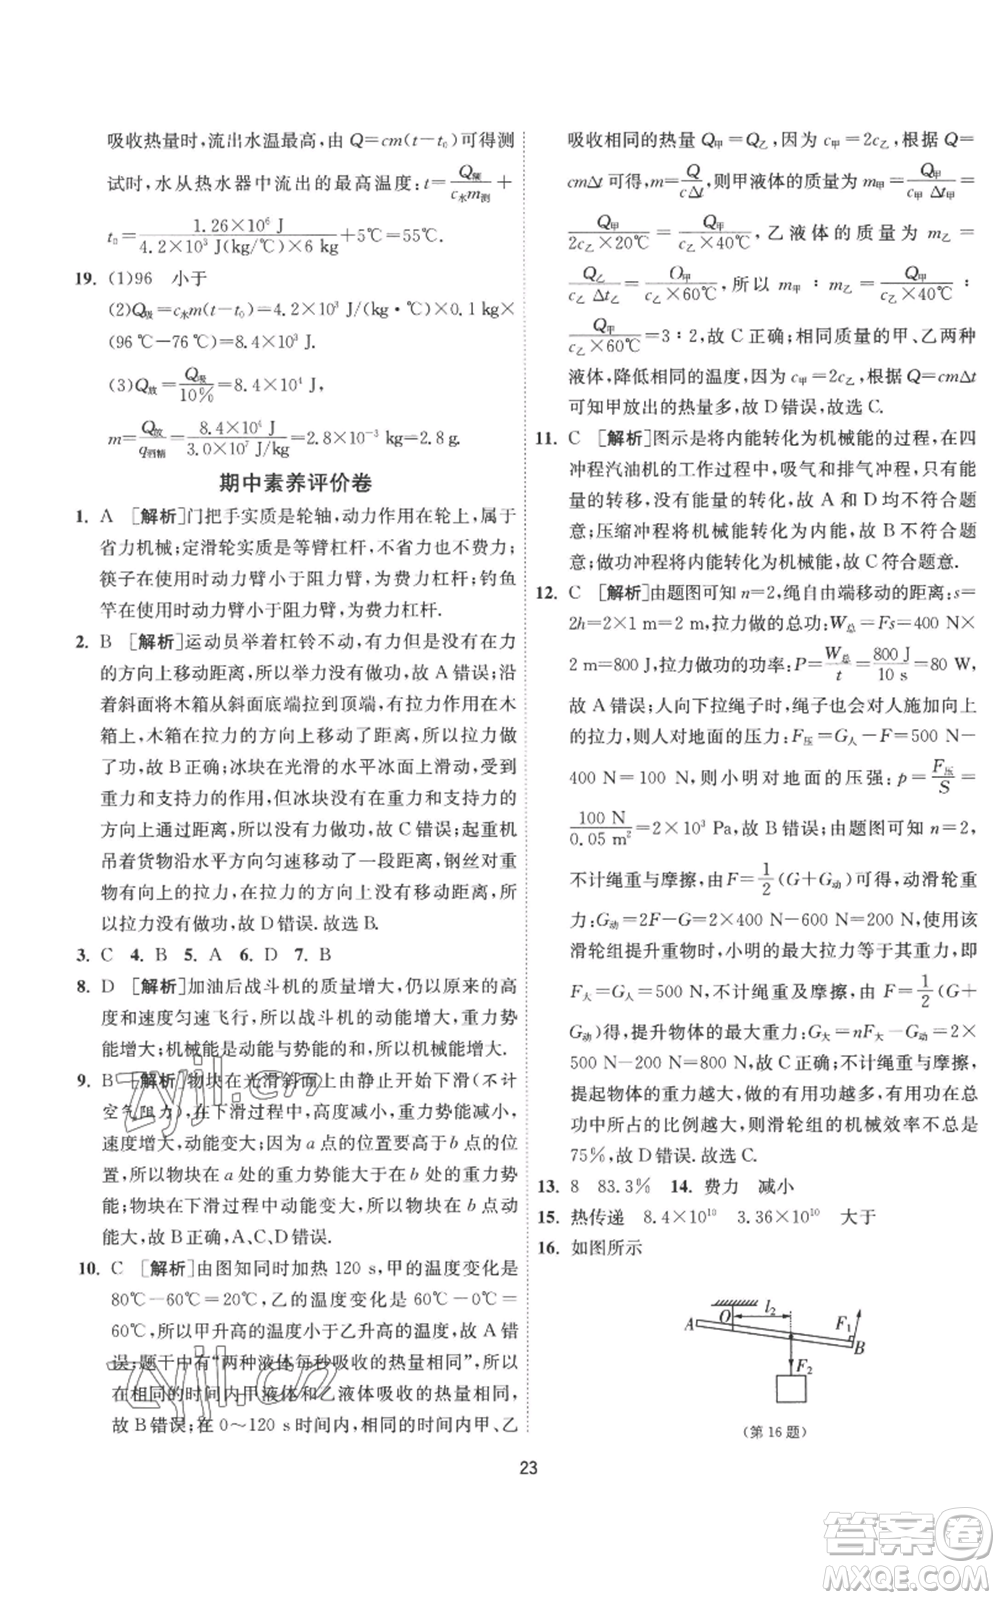 吸收热量时,流出水温最高,由 Q=cm(t-t₀)可得测
试时,水从热水器中流出的最高温度:t=Q/(c水m测)+
=1.26×10⁶ J/(4.2×10³ J(kg/℃)×6 kg)+5℃=55℃.
19. (1)96 小于
(2)Q吸=c水m(t-t₀)=4.2×10³ J/(kg·℃)×0.1 kg×
(96 ℃-76 ℃)=8.4×10³ J.
(3)Q放=Q吸/10%=8.4×10⁴ J,
m=Q放/q酒精=8.4×10⁴ J/(3.0×10⁷ J/kg)=2.8×10⁻³ kg=2.8 g.
期中素养评价卷
1. A [解析]门把手实质是轮轴,动力作用在轮上,属于
省力机械;定滑轮实质是等臂杠杆,不省力也不费力;
筷子在使用时动力臂小于阻力臂,为费力杠杆;钓鱼
竿在使用时动力臂小于阻力臂,为费力杠杆.
2. B [解析]运动员举着杠铃不动,有力但是没有在力
的方向上移动距离,所以举力没有做功,故 A 错误;沿
着斜面将木箱从斜面底端拉到顶端,有拉力作用在木
箱上,木箱在拉力的方向上移动了距离,所以拉力做
了功,故 B 正确;冰块在光滑的水平冰面上滑动,受到
重力和支持力的作用,但冰块没有在重力和支持力的
方向上通过距离,所以没有力做功,故 C 错误;起重机
吊着货物沿水平方向匀速移动了一段距离,钢丝对重
物有向上的拉力,在拉力的方向上没有移动距离,所
以拉力没有做功,故 D 错误.故选 B.
3. C 4. B 5. A 6. D 7. B
8. D [解析]加油后战斗机的质量增大,仍以原来的高
度和速度匀速飞行,所以战斗机的动能增大,重力势
能增大;机械能是动能和势能的和,所以机械能增大.
9. B [解析]物块在光滑斜面上由静止开始下滑(不计
空气阻力),在下滑过程中,高度减小,重力势能减小,
速度增大,动能变大;因为 a 点的位置要高于 b 点的
位置,所以物块在 a 处的重力势能大于 b 处的重力势
能;物块在下滑过程中动能变大,所以物块在 b 点动
能最大,故 B 正确,A、C、D 错误.
10. C [解析]由图知同时加热 120 s,甲的温度变化是
80℃-60℃=20℃,乙的温度变化是 60℃-0℃=
60℃,所以甲升高的温度小于乙升高的温度,故 A 错
误;题干中有“两种液体每秒吸收的热量相同”,所以
在相同的时间内甲液体和乙液体吸收的热量相同,
故 B 错误;在 0～120 s 时间内,相同时间内甲、乙
吸收相同的热量 Q甲=Q乙,因为 c甲=2c乙,根据 Q=
cmΔt 可得,m=Q/(cΔt),则甲液体的质量为 m甲=Q甲/(c甲Δt甲)=
Q甲/(2c乙×20℃)=Q甲/(c乙×40℃),乙液体的质量为 m乙=
Q乙/(c乙Δt乙)=Q甲/(c乙×60℃),所以 m甲:m乙=Q甲/(c乙×40℃):
Q甲/(c乙×60℃)=3:2,故 C 正确;相同质量的甲、乙两种
液体,降低相同的温度,因为 c甲=2c乙,根据 Q=cmΔt
可知甲放出的热量多,故 D 错误,故选 C.
11. C [解析]图示是将内能转化为机械能的过程,在四
冲程汽油机的工作过程中,吸气和排气冲程,只有能
量的转移,没有能量的转化,故 A 和 D 均不符合题
意;压缩冲程将机械能转化为内能,故 B 不符合题
意;做功冲程将内能转化为机械能,故 C 符合题意.
12. C [解析]由题图可知 n=2,绳自由端移动的距离:s=
2h=2×1 m=2 m,拉力做的总功:W总=Fs=400 N×
2 m=800 J,拉力做功的功率:P=W总/t=800 J/10 s=80 W,
故 A 错误;人向下拉绳子时,绳子也对人施加向上
的拉力,则人对地面的压力:F压=G人-F=500 N-
400 N=100 N,则小明对地面的压强:p=F压/S=
100 N/0.05 m²=2×10³ Pa,故 B 错误;由题图可知 n=2,
不计绳重与摩擦,由 F=1/2(G+G动)可得,动滑轮重
力:G动=2F-G=2×400 N-600 N=200 N,使用该
滑轮组提升重物时,小明的最大拉力等于其重力,即
F大=G人=500 N,不计绳重及摩擦,由 F=1/2(G+
G动)得,提升物体的最大重力:G大=nF大-G动=2×
500 N-200 N=800 N,故 C 正确;不计绳重与摩擦,
提起物体的重力越大,做的有用功越大,有用功在总
功中所占的比例越大,则滑轮组的机械效率不总是
75%,故 D 错误.故选 C.
13. 8 83.3% 14. 费力 减小
15. 热传递 8.4×10¹⁰ 3.36×10¹⁰ 大于
16. 如图所示
A l₂ F₁ B
F₂
(第 16 题)
23
zyjl.cn
zyjl.cn
答案圈
MXQE.COM